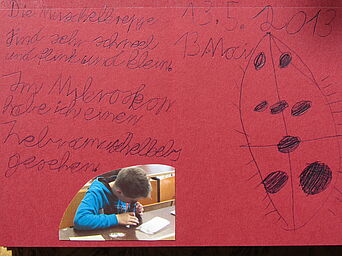 Die Muschelkrebse
sind sehr schnell
und flink und klein.
Im Mikroskop
habe ich einen
gesehen.
13.5.2013
13 Mai